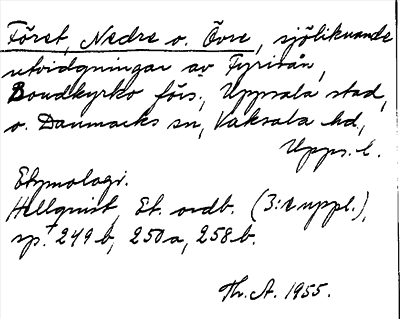 Föret, Nedre o. Övre, sjöliknande
utvidgningar av Fyrisån,
Bondkyrko förs., Uppsala stad,
o. Danmarks sn, Vaksala hd,
Upps. l.
Etymologi.
Hellquist, Et. ordb. (3:e uppl.),
sp. 249 b, 250 a, 258 b.
Th. A. 1955.